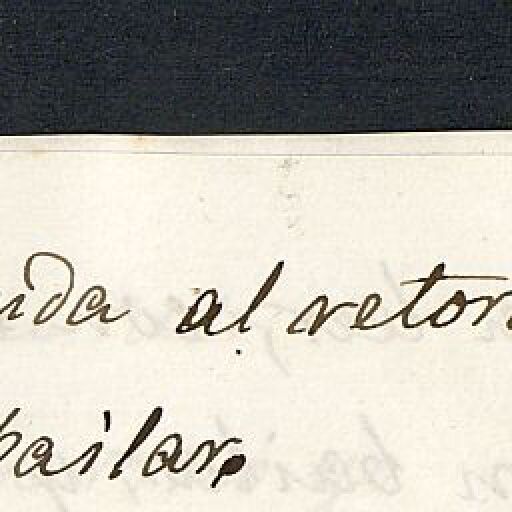 uida al retor
bailar.